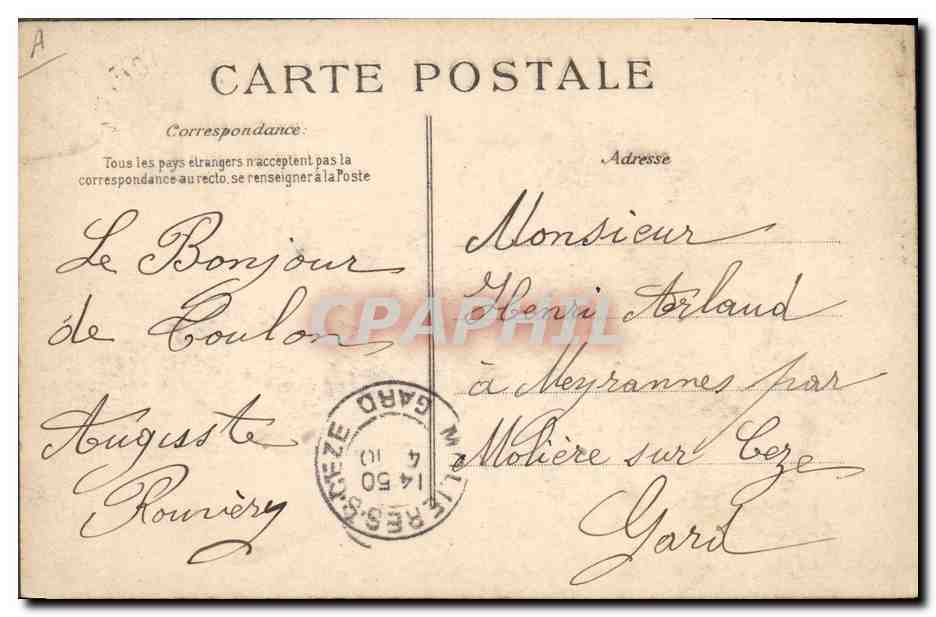 A
CARTE POSTALE
Correspondance:
Tous les pays étrangers n'acceptent pas la
correspondance au recto, se renseigner à la Poste
Le Bonjour
de Toulon
Auguste
Rouvièry
Adresse
Monsieur
Henri Arlaud
à Meyrannes par
Molière sur Ceze
Gard
MOLIERES-S-CEZE GARD
14 50
4
10
CPAPHIL